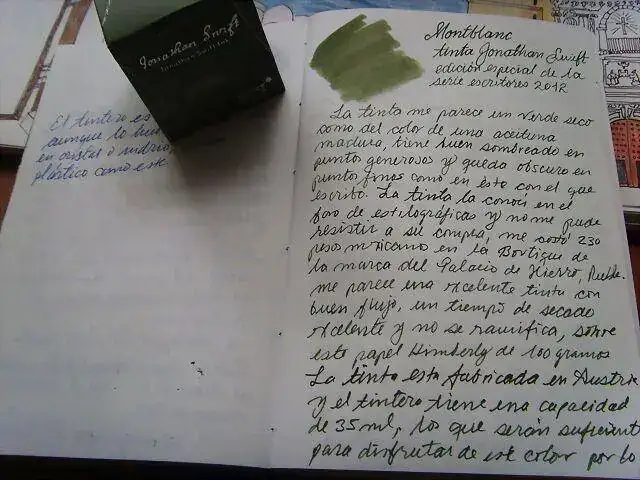 Jonathan Swift
Jonathan Swift Ink
El tintero es
aunque lo
en cristal o vidrio,
plástico como este
Montblanc
tinta Jonathan Swift
edición especial de la
serie escritores 2012
La tinta me parece un verde seco
como del color de una aceituna
madura, tiene buen sombreado en
puntos generosos y queda obscuro en
puntos finos como en esto con el que
escribo. La tinta la conocí en el
foro de estilográficas y no me pude
resistir a su compra, me costó 230
pesos mexicano en la Boutique de
la marca del Palacio de Hierro, Pueble.
me parece una excelente tinta con
buen flujo, un tiempo de secado
excelente y no se ramifica, sobre
este papel Kimberly de 100 gramos
La tinta esta fabricada en Austria
y el tintero tiene una capacidad
de 35 ml, los que serán suficient
para disfrutar de este color por lo